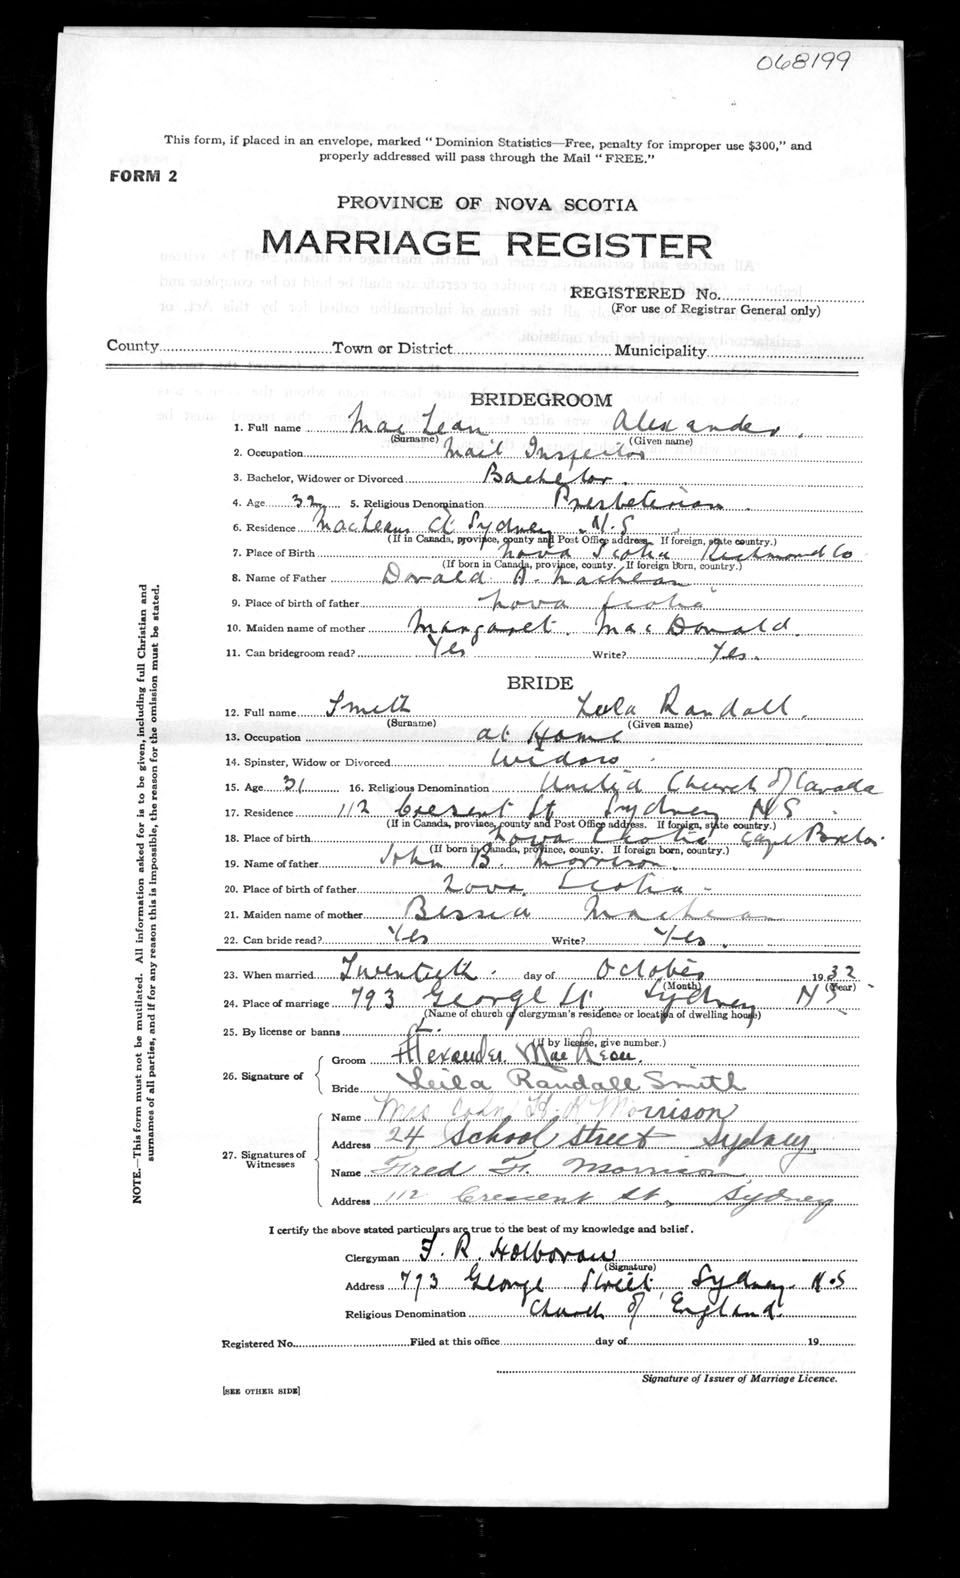 068199
This form, if placed in an envelope, marked "Dominion Statistics—Free, penalty for improper use $300," and
properly addressed will pass through the Mail "FREE."
FORM 2
PROVINCE OF NOVA SCOTIA
MARRIAGE REGISTER
REGISTERED No.
(For use of Registrar General only)
County Town or District Municipality
BRIDEGROOM
1. Full name MacLean Alexander.
(Surname) (Given name)
2. Occupation Mail Inspector
3. Bachelor, Widower or Divorced Bachelor.
4. Age 32 5. Religious Denomination Presbeterian
6. Residence MacLeans Sydney N.S
(If in Canada, province, county and Post Office address. If foreign, state country.)
7. Place of Birth Nova Scotia Richmond Co
(If born in Canada, province, county. If foreign born, country.)
8. Name of Father Donald MacLean
9. Place of birth of father Nova Scotia
10. Maiden name of mother Margaret MacDonald.
11. Can bridegroom read? Yes Write? Yes.
BRIDE
12. Full name Smith Leila Randall.
(Surname) (Given name)
13. Occupation at Home
14. Spinster, Widow or Divorced Widow
15. Age 31 16. Religious Denomination United Church of Canada
17. Residence 112 Cresent St Sydney NS
(If in Canada, province, county and Post Office address. If foreign, state country.)
18. Place of birth Nova Scotia Cape Breton
(If born in Canada, province, county. If foreign born, country.)
19. Name of father John B. Morrison.
20. Place of birth of father Nova Scotia -
21. Maiden name of mother Bessie MacLean
22. Can bride read? Yes Write? Yes.
23. When married Twentieth. day of October 1932
(Month) (Year)
24. Place of marriage 793 George St Sydney NS
(Name of church or clergyman's residence or location of dwelling house)
25. By license or banns L.
(If by license, give number.)
26. Signature of Groom Alexander MacLean.
Bride Leila Randall Smith
27. Signatures of Witnesses
Name Mrs John H. R Morrison
Address 24 School Street Sydney
Name Fred H. Morrison
Address 112 Crescent St., Sydney
I certify the above stated particulars are true to the best of my knowledge and belief.
Clergyman F. R. Holborow
(Signature)
Address 793 George Street, Sydney. N.S
Religious Denomination Church of England.
Registered No. Filed at this office day of 19
Signature of Issuer of Marriage Licence.
[SEE OTHER SIDE]
NOTE.—This form must not be mutilated. All information asked for is to be given, including full Christian and
surnames of all parties, and if for any reason this is impossible, the reason for the omission must be stated.